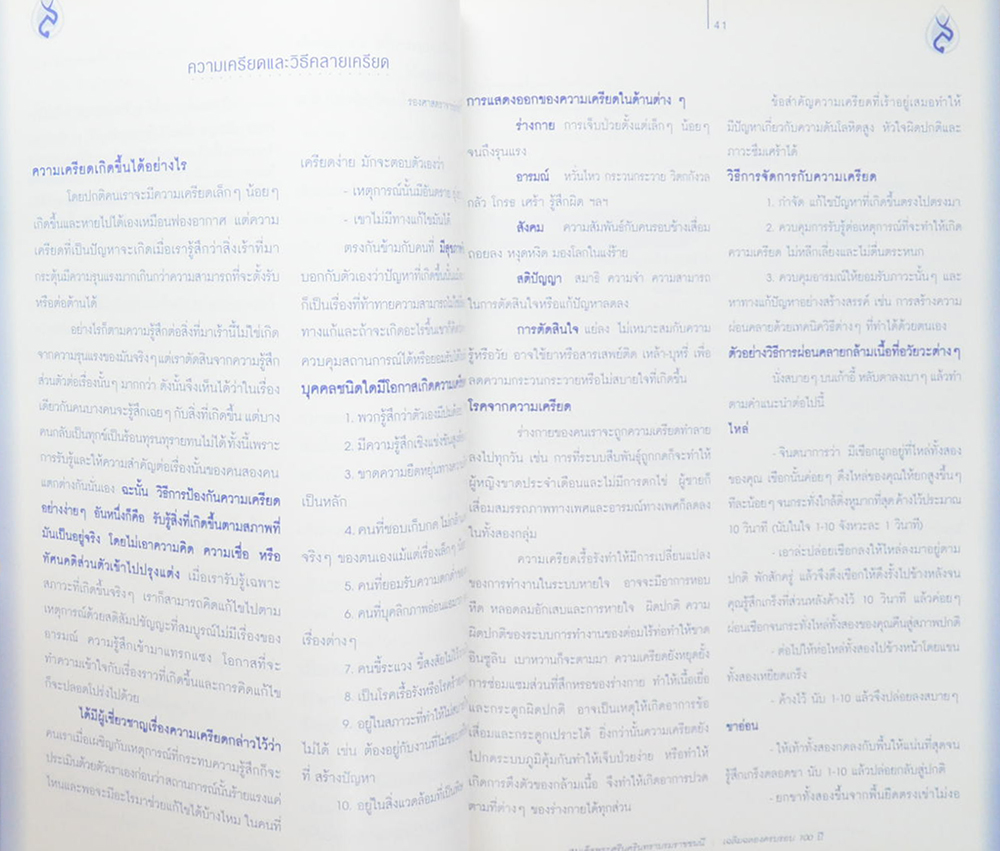 ความเครียดและวิธีคลายเครียด
รองศาสตราจารย์
ความเครียดเกิดขึ้นได้อย่างไร
โดยปกติคนเราจะมีความเครียดเล็กๆ น้อยๆ
เกิดขึ้นและหายไปได้เองเหมือนฟองอากาศ แต่ความ
เครียดที่เป็นปัญหาจะเกิดเมื่อเรารู้สึกว่าสิ่งเร้าที่มา
กระตุ้นมีความรุนแรงมากเกินกว่าความสามารถที่จะตั้งรับ
หรือต่อต้านได้
อย่างไรก็ตามความรู้สึกต่อสิ่งที่มาเร้านี้ไม่ใช่เกิด
จากความรุนแรงของมันจริงๆ แต่เราตัดสินจากความรู้สึก
ส่วนตัวต่อเรื่องนั้นๆ มากกว่า ดังนั้นจึงเห็นได้ว่าในเรื่อง
เดียวกันคนบางคนจะรู้สึกเฉยๆ กับสิ่งที่เกิดขึ้น แต่บาง
คนกลับเป็นทุกข์เป็นร้อนทุรนทุรายทนไม่ได้ ทั้งนี้เพราะ
การรับรู้และให้ความสำคัญต่อเรื่องนั้นของคนสองคน
แตกต่างกันนั่นเอง ฉะนั้น วิธีการป้องกันความเครียด
อย่างง่ายๆ อันหนึ่งก็คือ รับรู้สิ่งที่เกิดขึ้นตามสภาพที่
มันเป็นอยู่จริง โดยไม่เอาความคิด ความเชื่อ หรือ
ทัศนคติส่วนตัวเข้าไปปรุงแต่ง เมื่อเรารับรู้เฉพาะ
สภาวะที่เกิดขึ้นจริงๆ เราก็สามารถคิดแก้ไขไปตาม
เหตุการณ์ด้วยสติสัมปชัญญะที่สมบูรณ์ไม่มีเรื่องของ
อารมณ์ ความรู้สึกเข้ามาแทรกแซง โอกาสที่จะ
ทำความเข้าใจกับเรื่องราวที่เกิดขึ้นและการคิดแก้ไข
ก็จะปลอดโปร่งไปด้วย
ได้มีผู้เชี่ยวชาญเรื่องความเครียดกล่าวไว้ว่า
คนเราเมื่อเผชิญกับเหตุการณ์ที่กระทบความรู้สึกก็จะ
ประเมินด้วยตัวเราเองก่อนว่าสถานการณ์นั้นร้ายแรงแค่
ไหนและพอจะมีอะไรมาช่วยแก้ไขได้บ้างไหม ในคนที่
เครียดง่าย มักจะตอบตัวเองว่า
- เหตุการณ์นั้นมีอันตราย
- เขาไม่มีทางแก้ไขมันได้
ตรงกันข้ามกับคนที่
บอกกับตัวเองว่าปัญหาที่เกิดขึ้นนั้น
ก็เป็นเรื่องที่ท้าทายความสามารถ
ทางแก้และถ้าจะเกิดอะไรขึ้นเขาก็
ควบคุมสถานการณ์ได้หรือยอมรับ
บุคคลชนิดใดมีโอกาสเกิดความเครียด
1. พวกรู้สึกว่าตัวเองมีปม
2. มีความรู้สึกเชิงแข่งขัน
3. ขาดความยืดหยุ่นทาง
เป็นหลัก
4. คนที่ชอบเก็บกด
จริงๆ ของตนเองแม้แต่เรื่องเล็กๆ
5. คนที่ยอมรับความ
6. คนที่บุคลิกภาพอ่อนแอ
เรื่องต่างๆ
7. คนขี้ระแวง ขี้สงสัย
8. เป็นโรคเรื้อรังหรือโรค
9. อยู่ในสภาวะที่ทำให้
ไม่ได้ เช่น ต้องอยู่กับงานที่
ที่ สร้างปัญหา
10. อยู่ในสิ่งแวดล้อมที่เป็น
41
การแสดงออกของความเครียดในด้านต่าง ๆ
ร่างกาย การเจ็บป่วยตั้งแต่เล็กๆ น้อยๆ
จนถึงรุนแรง
อารมณ์ หวั่นไหว กระวนกระวาย วิตกกังวล
กลัว โกรธ เศร้า รู้สึกผิด ฯลฯ
สังคม ความสัมพันธ์กับคนรอบข้างเสื่อม
ถอยลง หงุดหงิด มองโลกในแง่ร้าย
สติปัญญา สมาธิ ความจำ ความสามารถ
ในการตัดสินใจหรือแก้ปัญหาลดลง
การตัดสินใจ แย่ลง ไม่เหมาะสมกับความ
รู้หรือวัย อาจใช้ยาหรือสารเสพย์ติด เหล้า-บุหรี่ เพื่อ
ลดความกระวนกระวายหรือไม่สบายใจที่เกิดขึ้น
โรคจากความเครียด
ร่างกายของคนเราจะถูกความเครียดทำลาย
ลงไปทุกวัน เช่น การที่ระบบสืบพันธุ์ถูกกดก็จะทำให้
ผู้หญิงขาดประจำเดือนและไม่มีการตกไข่ ผู้ชายก็
เสื่อมสมรรถภาพทางเพศและอารมณ์ทางเพศก็ลดลง
ในทั้งสองกลุ่ม
ความเครียดเรื้อรังทำให้มีการเปลี่ยนแปลง
ของการทำงานในระบบหายใจ อาจจะมีอาการหอบ
หืด หลอดลมอักเสบและการหายใจ ผิดปกติ ความ
ผิดปกติของระบบการทำงานของต่อมไร้ท่อทำให้ขาด
อินซูลิน เบาหวานก็จะตามมา ความเครียดยังหยุดยั้ง
การซ่อมแซมส่วนที่สึกหรอของร่างกาย ทำให้เนื้อเยื่อ
และกระดูกผิดปกติ อาจเป็นเหตุให้เกิดอาการข้อ
เสื่อมและกระดูกเปราะได้ ยิ่งกว่านั้นความเครียดยัง
ไปกดระบบภูมิคุ้มกันทำให้เจ็บป่วยง่าย หรือทำให้
เกิดการตึงตัวของกล้ามเนื้อ จึงทำให้เกิดอาการปวด
ตามที่ต่างๆ ของร่างกายได้ทุกส่วน
ข้อสำคัญความเครียดที่เร้าอยู่เสมอทำให้
มีปัญหาเกี่ยวกับความดันโลหิตสูง หัวใจผิดปกติและ
ภาวะซึมเศร้าได้
วิธีการจัดการกับความเครียด
1. กำจัด แก้ไขปัญหาที่เกิดขึ้นตรงไปตรงมา
2. ควบคุมการรับรู้ต่อเหตุการณ์ที่จะทำให้เกิด
ความเครียด ไม่หลีกเลี่ยงและไม่ตื่นตระหนก
3. ควบคุมอารมณ์ให้ยอมรับภาวะนั้นๆ และ
หาทางแก้ปัญหาอย่างสร้างสรรค์ เช่น การสร้างความ
ผ่อนคลายด้วยเทคนิควิธีต่างๆ ที่ทำได้ด้วยตนเอง
ตัวอย่างวิธีการผ่อนคลายกล้ามเนื้อที่อวัยวะต่างๆ
นั่งสบายๆ บนเก้าอี้ หลับตาลงเบาๆ แล้วทำ
ตามคำแนะนำต่อไปนี้
ไหล่
- จินตนาการว่า มีเชือกผูกอยู่ที่ไหล่ทั้งสอง
ของคุณ เชือกนั้นค่อยๆ ดึงไหล่ของคุณให้ยกสูงขึ้นๆ
ทีละน้อยๆ จนกระทั่งใกล้ติ่งหูมากที่สุด ค้างไว้ประมาณ
10 วินาที (นับในใจ 1-10 จังหวะละ 1 วินาที)
- เอาล่ะปล่อยเชือกลงให้ไหล่ลงมาอยู่ตาม
ปกติ พักสักครู่ แล้วจึงดึงเชือกให้ดึงรั้งไปข้างหลังจน
คุณรู้สึกเกร็งที่ส่วนหลังค้างไว้ 10 วินาที แล้วค่อยๆ
ผ่อนเชือกจนกระทั่งไหล่ทั้งสองของคุณคืนสู่สภาพปกติ
- ต่อไปให้ห่อไหล่ทั้งสองไปข้างหน้าโดยแขน
ทั้งสองเหยียดเกร็ง
- ค้างไว้ นับ 1-10 แล้วจึงปล่อยลงสบายๆ
ขาอ่อน
- ให้เท้าทั้งสองกดลงกับพื้นให้แน่นที่สุดจน
รู้สึกเกร็งตลอดขา นับ 1-10 แล้วปล่อยกลับสู่ปกติ
- ยกขาทั้งสองขึ้นจากพื้นยืดตรงเข่าไม่งอ
สมเด็จพระศรีนครินทราบรมราชชนนี - เฉลิมฉลองครบรอบ 100 ปี